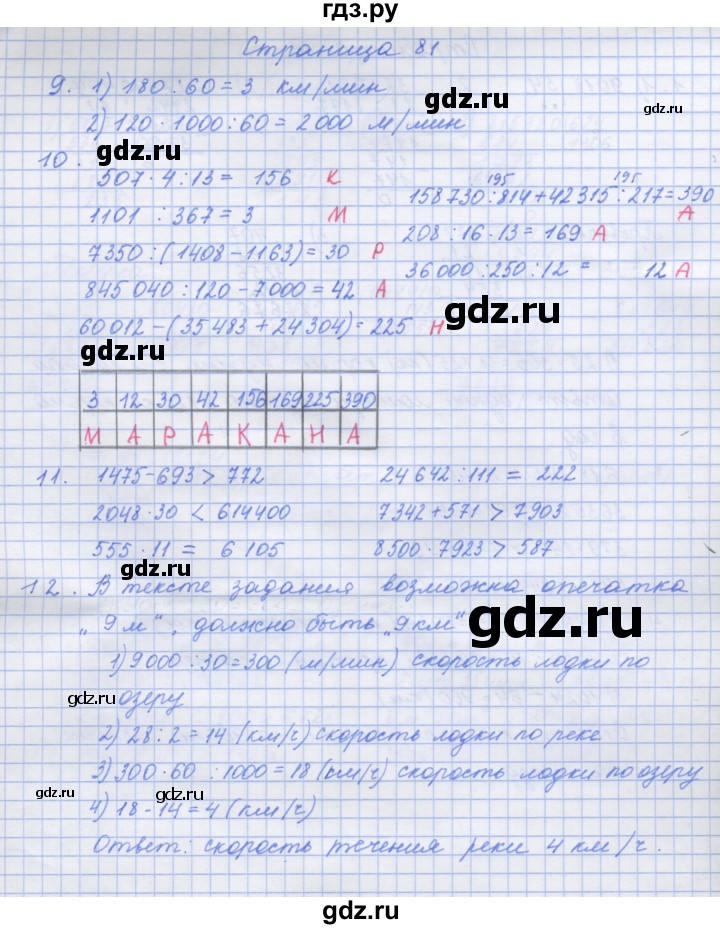 гдз.ру
Страница 81
9. 1) 180 : 60 = 3 км/мин
gdz.ru
2) 120 · 1000 : 60 = 2000 м/мин
gdz.ru
10.
507 · 4 : 13 = 156 К
1101 : 367 = 3 М
7350 : (1408 - 1163) = 30 Р
845 040 : 120 - 7000 = 42 А
60 012 - (35 483 + 24 304) = 225 Н
195 195
158 730 : 814 + 42 315 : 217 = 390
А
208 : 16 · 13 = 169 А
36 000 : 250 : 12 = 12 А
gdz.ru
gdz.ru
3 12 30 42 156 169 225 390
М А Р А К А Н А
gdz.ru
11. 1475 - 693 > 772 24 642 : 111 = 222
2048 · 30 < 614400 7342 + 571 > 7903
555 · 11 = 6 105 8500 · 7923 > 587
gdz.ru
12. В тексте задания возможна опечатка
„9 м“, должно быть „9 км“
gdz.ru
1) 9 000 : 30 = 300 (м/мин) скорость лодки по
gdz.ru
озеру
2) 28 : 2 = 14 (км/ч) скорость лодки по реке
3) 300 · 60 : 1000 = 18 (км/ч) скорость лодки по озеру
gdz.ru
gdz.ru
4) 18 - 14 = 4 (км/ч)
Ответ: скорость течения реки 4 км/ч.
gdz.ru